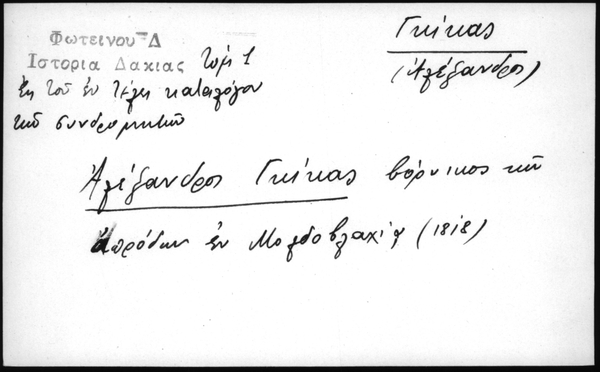 Φωτεινου Δ
Ιστορια Δακιας Τομ 1
Εκ του εν τέλει καταλόγου
των συνδρομητών
Γκίκας
(Αλέξανδρος)
Αλέξανδρος Γκίκας βόρνικος των
απρόδων εν Μολδοβλαχία (1818)